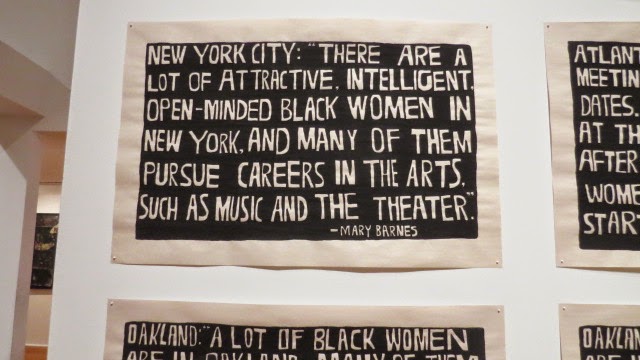 NEW YORK CITY: "THERE ARE A
LOT OF ATTRACTIVE, INTELLIGENT,
OPEN-MINDED BLACK WOMEN IN
NEW YORK, AND MANY OF THEM
PURSUE CAREERS IN THE ARTS,
SUCH AS MUSIC AND THE THEATER."
-MARY BARNES
ATLANT
MEETIN
DATES.
AT TH
AFTER
WOME
START
OAKLAND: "A LOT OF BLACK WOMEN
ARE IN OAKLAND. MANY OF THEM
OAKLAN